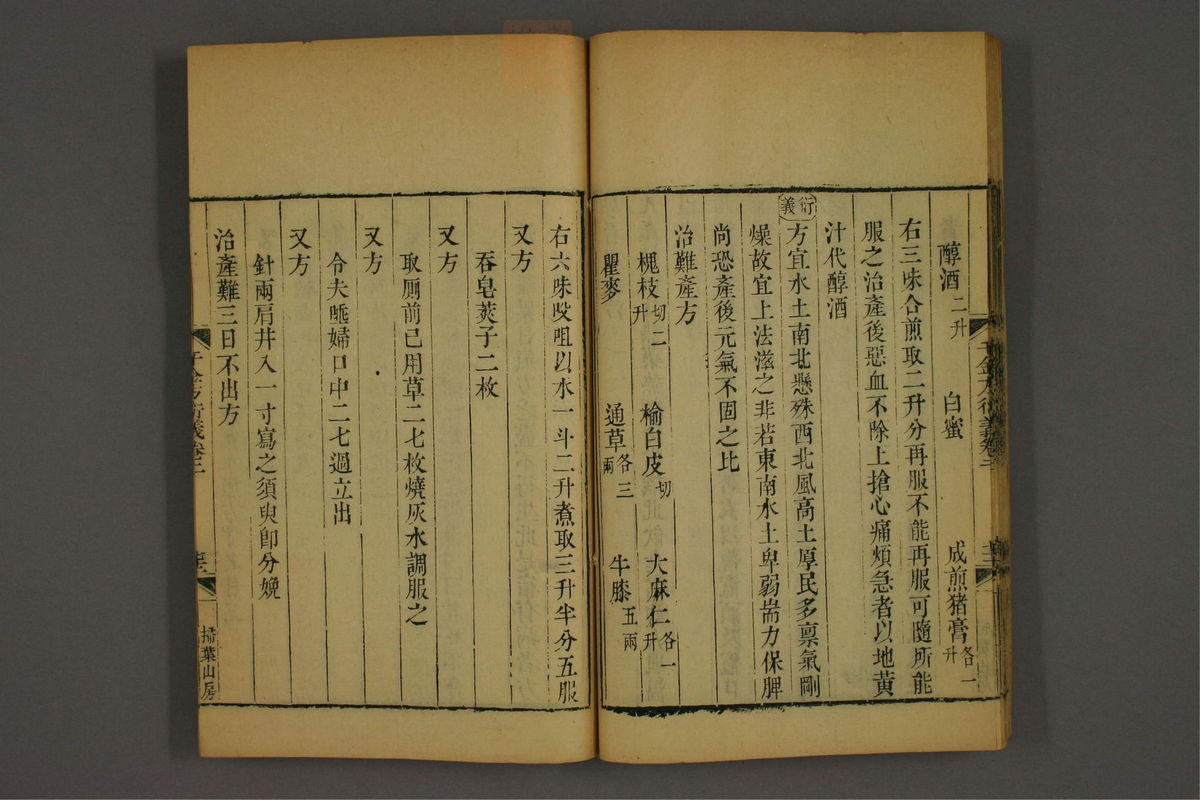 醇酒二升　白蜜　成煎猪膏各一升
右三味合煎取二升分再服不能再服可隨所能
服之治產後惡血不除上搶心痛煩急者以地黃
汁代醇酒
衍義
方宜水土南北懸殊西北風高土厚民多禀氣剛
燥故宜上法滋之非若東南水土卑弱耑力保脾
尚恐產後元氣不固之比
治難產方
槐枝切二升　榆白皮切　大麻仁各一升
瞿麥　通草各三兩　牛膝五兩
右六味㕮咀以水一斗二升煮取三升半分五服
又方
吞皂莢子二枚
又方
取厠前已用草二七枚燒灰水調服之
又方
令夫唾婦口中二七過立出
又方
針兩肩井入一寸寫之須臾即分娩
治產難三日不出方
千金方衍義卷二
掃葉山房